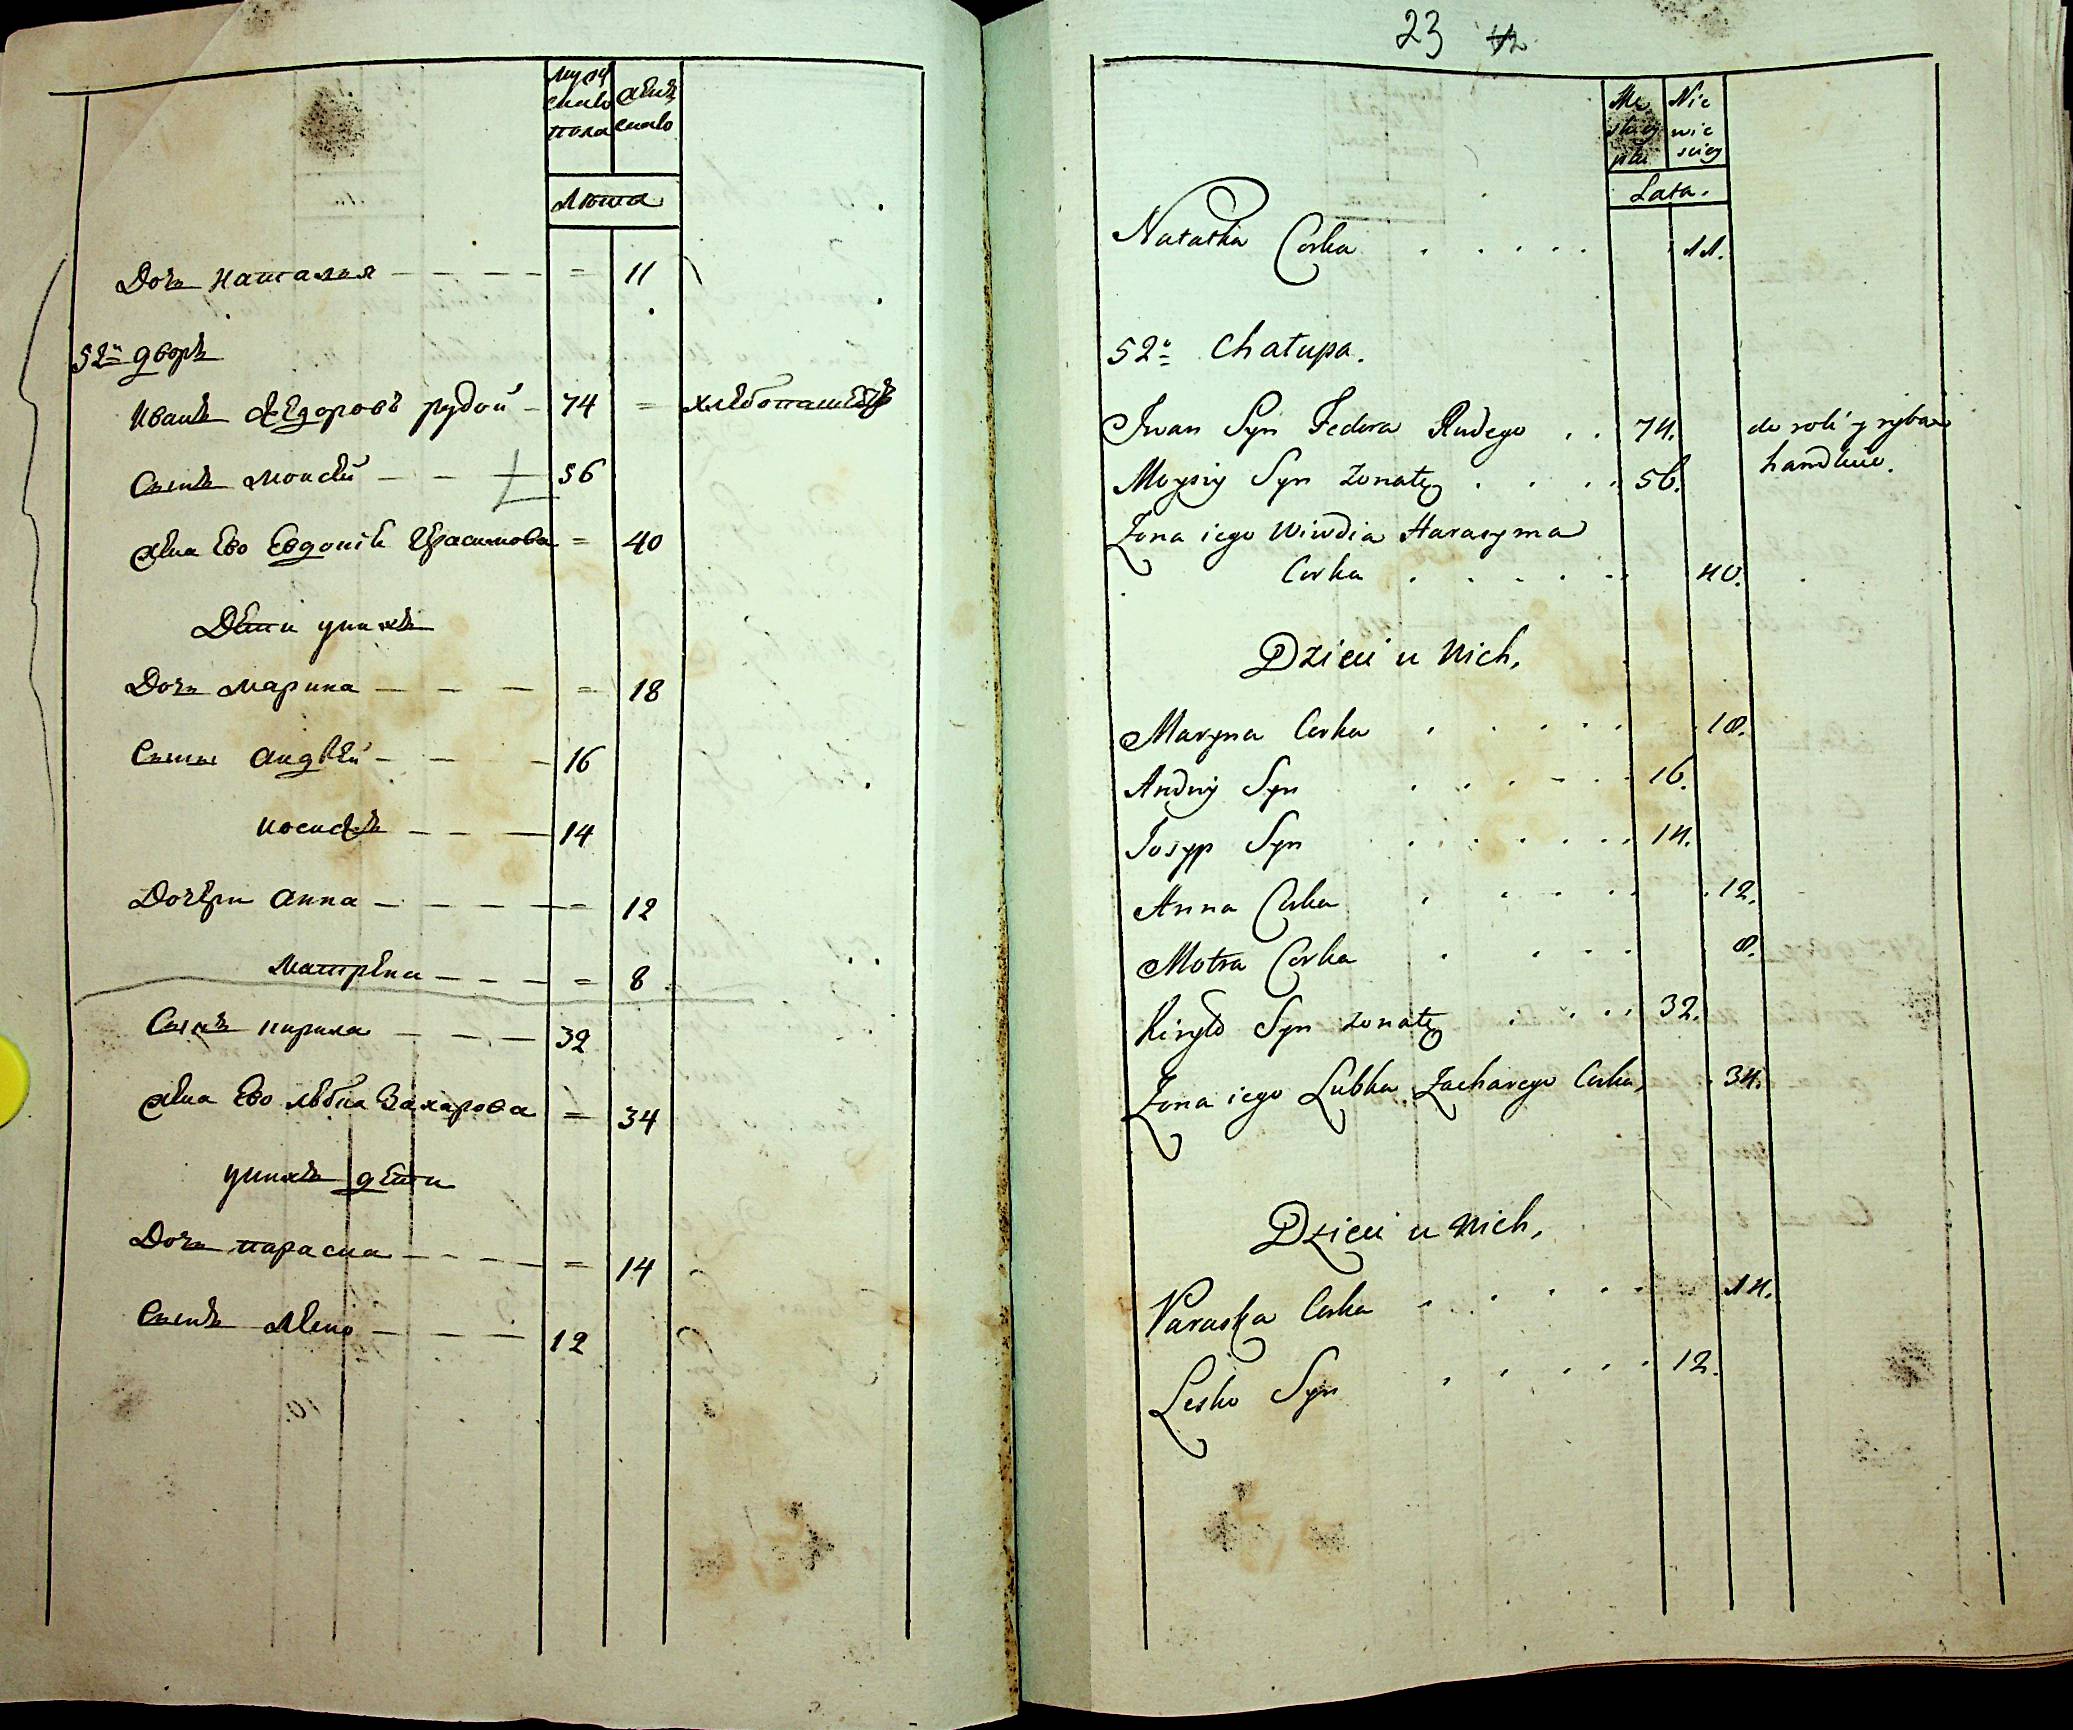 муж
скаго
пола
женс
скаго
лѣта
Дочь наталья 11
52й дворъ
иванъ ѳедоровъ рудой 74 хлѣбопашецъ
Сынъ моисѣй 56
жена Ево Евдокіѣ Герасимова 40
Дѣти унихъ
Дочь марина 18
Сыны андрѣй 16
иосифъ 14
Дочери анна 12
матрѣна 8
Сынъ кирила 32
жена Ево любка Захарова 34
унихъ дѣти
Дочь параска 14
Сынъ лѣско 12
23
Nie
wie
sciey
Lata.
Natałka Corka 11.
52o Chałupa.
Iwan Syn Fedora Rudego 74. do roli y ryba
handluie.
Moysiy Syn żonaty 56.
Żona iego Wiwdia Harasyma
Corka 40.
Dzieci u Nich,
Maryna Corka 18.
Andriy Syn 16.
Josyp Syn 14.
Anna Corka 12.
Motra Corka 8.
Kiryło Syn żonaty 32.
Żona iego Lubka Zacharego Corka, 34.
Dzieci u Nich,
Paraska Corka 14.
Lesko Syn 12.